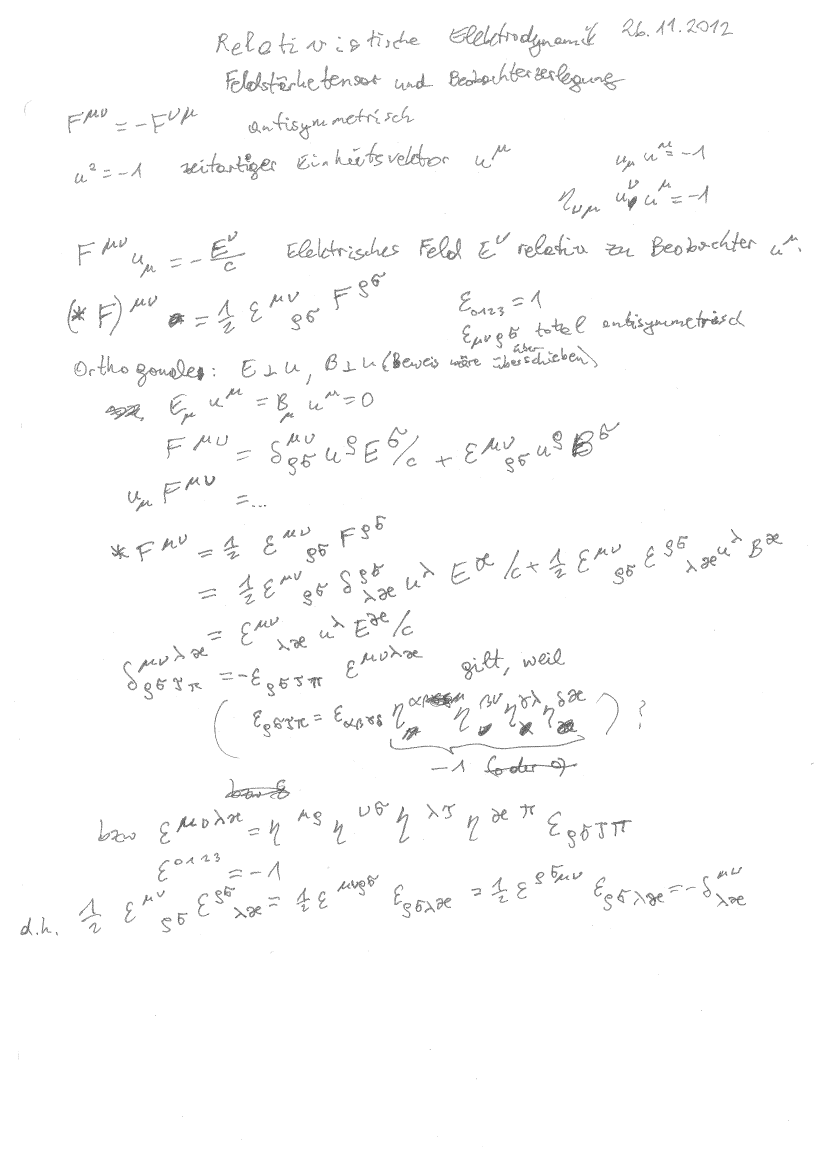 Relativistische Elektrodynamik 26.11.2012
Feldstärketensor und Beobachterzerlegung
F^{μν} = -F^{νμ} antisymmetrisch
u² = -1 zeitartiger Einheitsvektor u^μ u_μ u^μ = -1
η_{νμ} u^ν u^μ = -1
F^{μν} u_μ = - E^ν/c Elektrisches Feld E^ν relativ zu Beobachter u^μ.
(* F)^{μν} = 1/2 ε^{μν}_{ρσ} F^{ρσ} ε_{0123} = 1
ε_{μνρσ} total antisymmetrisch
Orthogonale: E ⊥ u, B ⊥ u (Beweis wäre über überschieben)
E_μ u^μ = B_μ u^μ = 0
F^{μν} = δ^{μν}_{ρσ} u^ρ E^σ/c + ε^{μν}_{ρσ} u^ρ B^σ
u_μ F^{μν} = ...
* F^{μν} = 1/2 ε^{μν}_{ρσ} F^{ρσ}
= 1/2 ε^{μν}_{ρσ} δ^{ρσ}_{λϰ} u^λ E^ϰ/c + 1/2 ε^{μν}_{ρσ} ε^{ρσ}_{λϰ} u^λ B^ϰ
= ε^{μν}_{λϰ} u^λ E^ϰ/c
δ^{μνλϰ}_{ρστπ} = -ε_{ρστπ} ε^{μνλϰ} gilt, weil
(ε_{ρστπ} = ε_{αβγδ} η^{α} η^{βν} η^{γλ} η^{δϰ}) ?
-1 (oder
bzw ε^{μνλϰ} = η^{μρ} η^{νσ} η^{λτ} η^{ϰπ} ε_{ρστπ}
ε^{0123} = -1
d.h. 1/2 ε^{μν}_{ρσ} ε^{ρσ}_{λϰ} = 1/2 ε^{μνρσ} ε_{ρσλϰ} = 1/2 ε^{ρσμν} ε_{ρσλϰ} = -δ^{μν}_{λϰ}